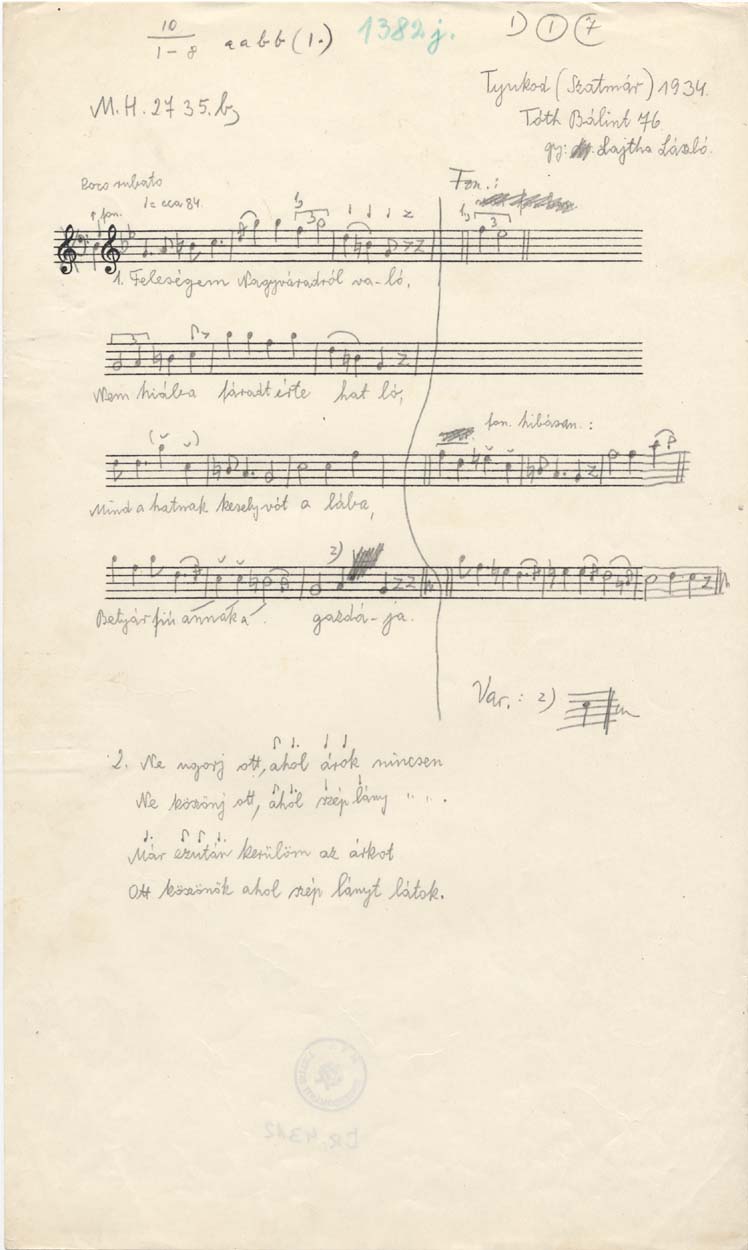 10
1-8 a a b b (1.) 1382 j. 1) 1 7
M.H. 2735. b)
Tyukod (Szatmár) 1934.
Tóth Bálint 76
gy: Lajtha László.
Poco rubato
♩= cca 84.
fon.
Fon.:
1. Feleségem Nagyváradról va-ló,
Nem hiába fáradt érte hat ló,
fon. hibásan.:
Mind a hatnak kesely vót a lába,
2)
Betyár fiú annak a gazdá-ja.
Var.: 2)
2. Ne ugorj ott, ahol árok nincsen
Ne köszönj ott, ahol szép lány " " .
Már ezután kerülöm az árkot
Ott köszönök ahol szép lányt látok.